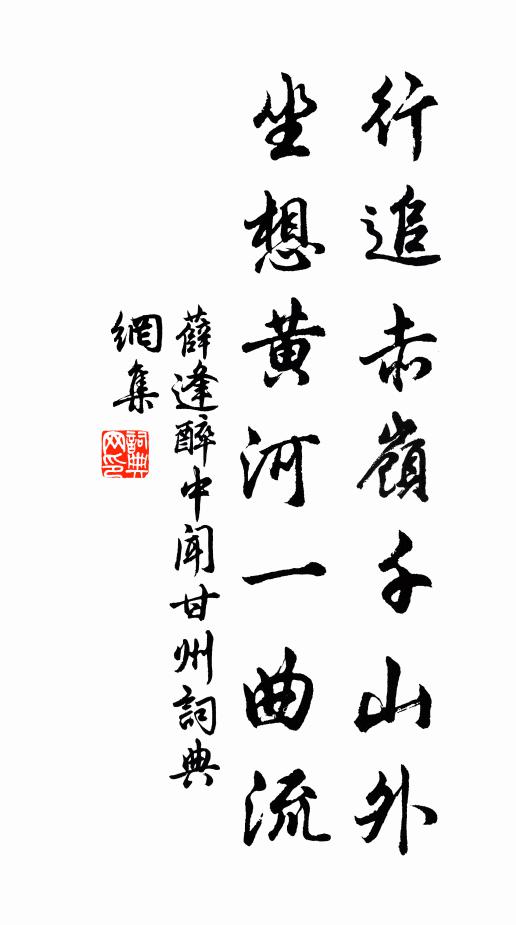 行追赤嶺千山外
坐想黃河一曲流
薛逢醉中聞甘州詞典
網集
詞典
网印